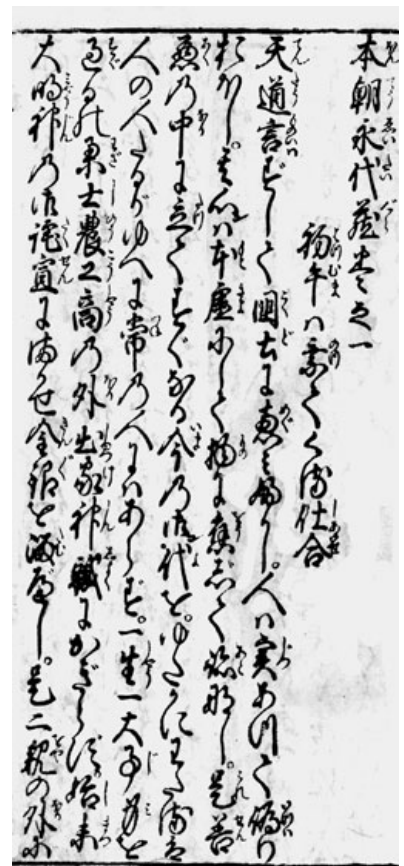 本朝永代蔵巻之一
初午ハ乗てくる仕合
天道言ずして國土に恵み深し。人ハ実あつて偽り
おほし。其心ハ本虚にして物に應じて跡なし。是善
悪の中に立てすぐなる今の御代を。ゆたかにわたるは
人の人たるがゆへに常の人にハあらず。一生一大事身を
過るの業士農工商の外出家神職にかぎらず始末
大明神の御詫宣にまかせ金銀を溜べし。是二親の外に